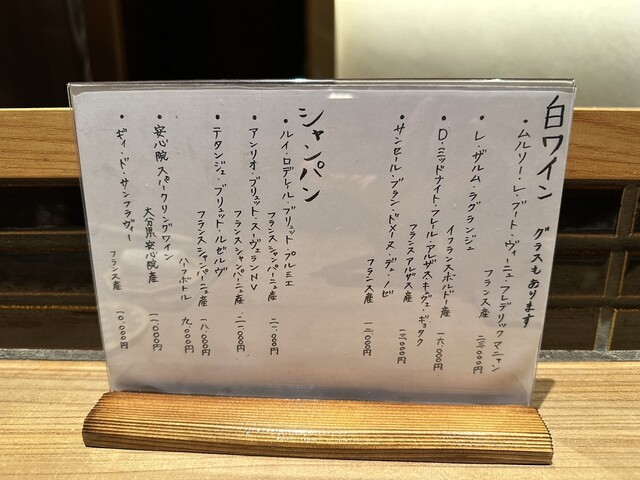 白ワイン グラスもあります
・ムルソー・レ・プート・ヴィーニュ・フレデリックマニャン
フランス産
・レ・ザルム・ラグランジュ
フランスボルドー産 一六、〇〇〇円
・D・ミッドナイト・フレール・アルザス・キュヴェ・ギョタク
フランスアルザス産 一三、〇〇〇円
・サンセール・ブラン・ドメーヌ・デュ・ノゼ
フランス産 一三、〇〇〇円
シャンパン
・ルイ・ロデレール・ブリュット プルミエ
フランスシャンパーニュ産 二一、〇〇〇円
・アンリオ・ブリュット・スーヴェランNV
フランスシャンパーニュ産 二一、〇〇〇円
・テタンジェ・ブリュット・レゼルヴ
フランスシャンパーニュ産 一八、〇〇〇円
ハーフボトル 九、〇〇〇円
・安心院スパークリングワイン
大分県安心院産 一一、〇〇〇円
・ギィ・ド・サンフラヴィー
フランス産 一〇、〇〇〇円